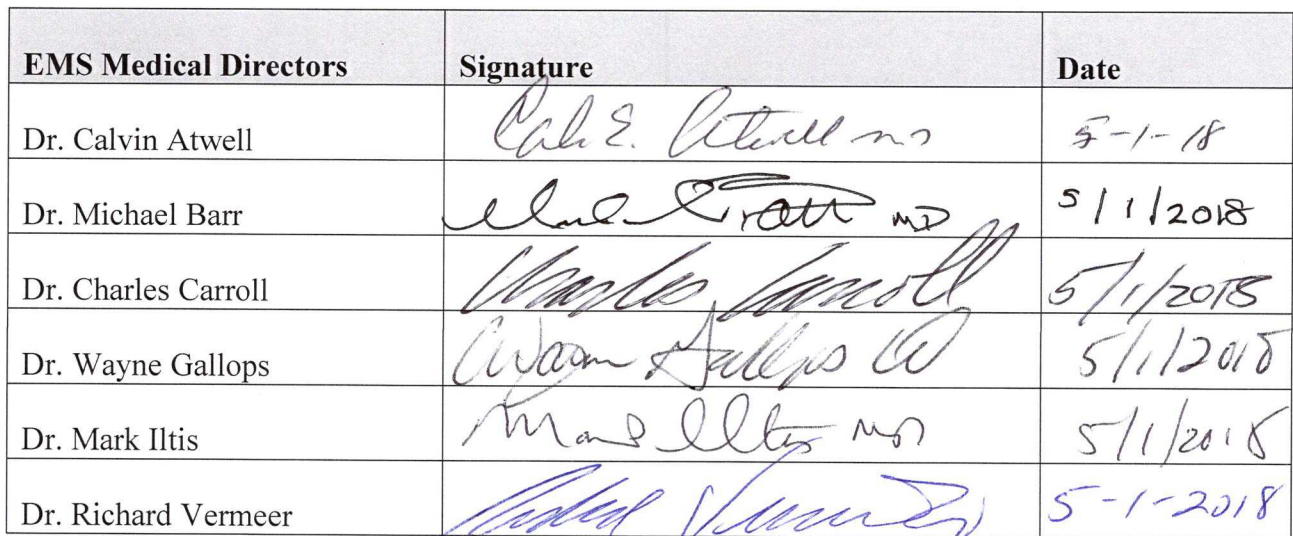 EMS Medical Directors Signature Date
Dr. Calvin Atwell Cal E. Atwell MD 5-1-18
Dr. Michael Barr MD 5/1/2018
Dr. Charles Carroll Charles Carroll 5/1/2018
Dr. Wayne Gallops Wayne Gallops 5/1/2018
Dr. Mark Iltis Mark Iltis MD 5/1/2018
Dr. Richard Vermeer 5-1-2018